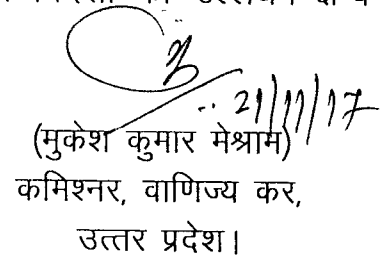 21/11/17
(मुकेश कुमार मेश्राम)
कमिश्नर, वाणिज्य कर,
उत्तर प्रदेश।